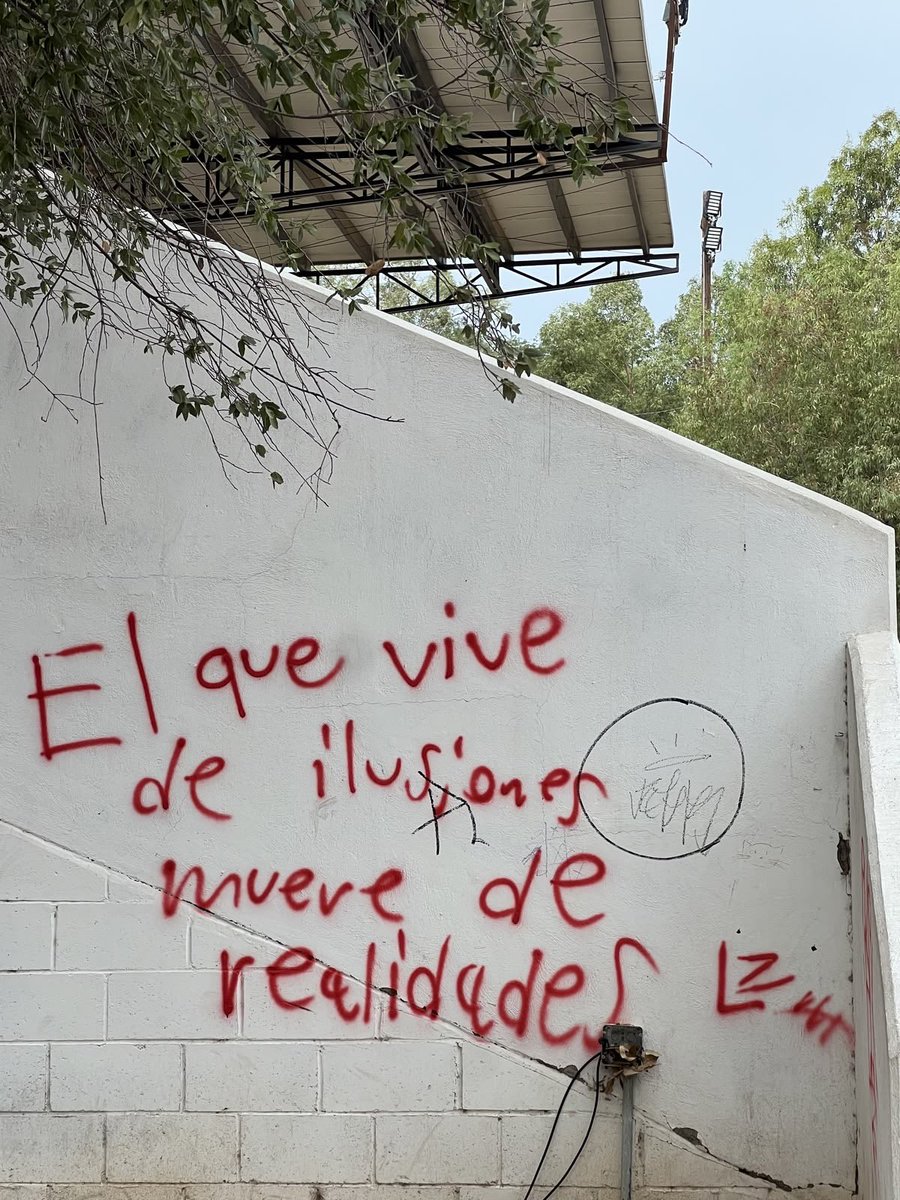 El que vive
de ilusiones
muere de
realidades